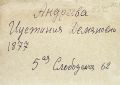 Андреева
Иустиния Демьяновна
1877
5ая Слободская 62